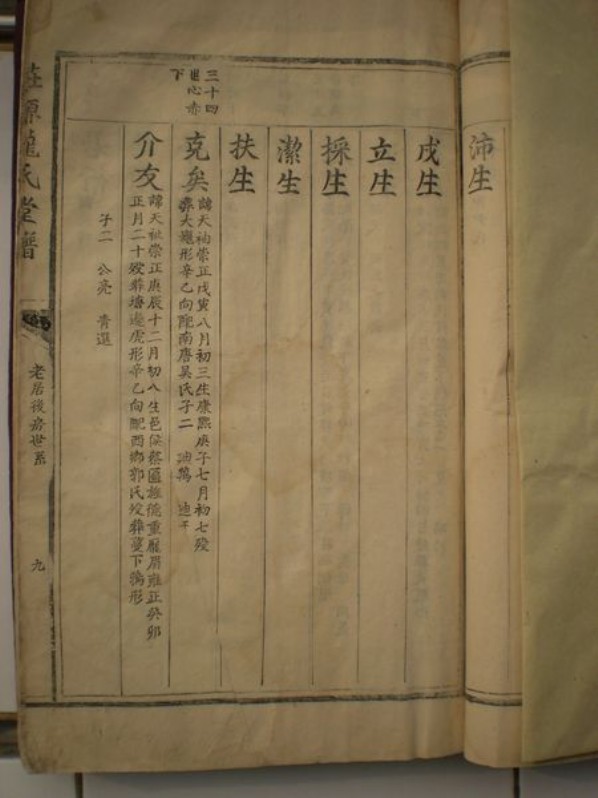 沛生
戌生
立生
採生
潔生
扶生
三十四
世心赤
下
克矣
諱天袖崇正戊寅八月初三生康熙庚子七月初七歿
葬大㘵形辛乙向配南唐吴氏子二 迪鵠 迪千
介友
諱天祉崇正庚辰十二月初八生邑侯蔡匾旌德重龐眉雍正癸卯
正月二十歿葬塘邊虎形辛乙向配西鄉郭氏歿葬蔓下鵝形
子二 公亮 青選
氏堂譜
老居後房世系
九